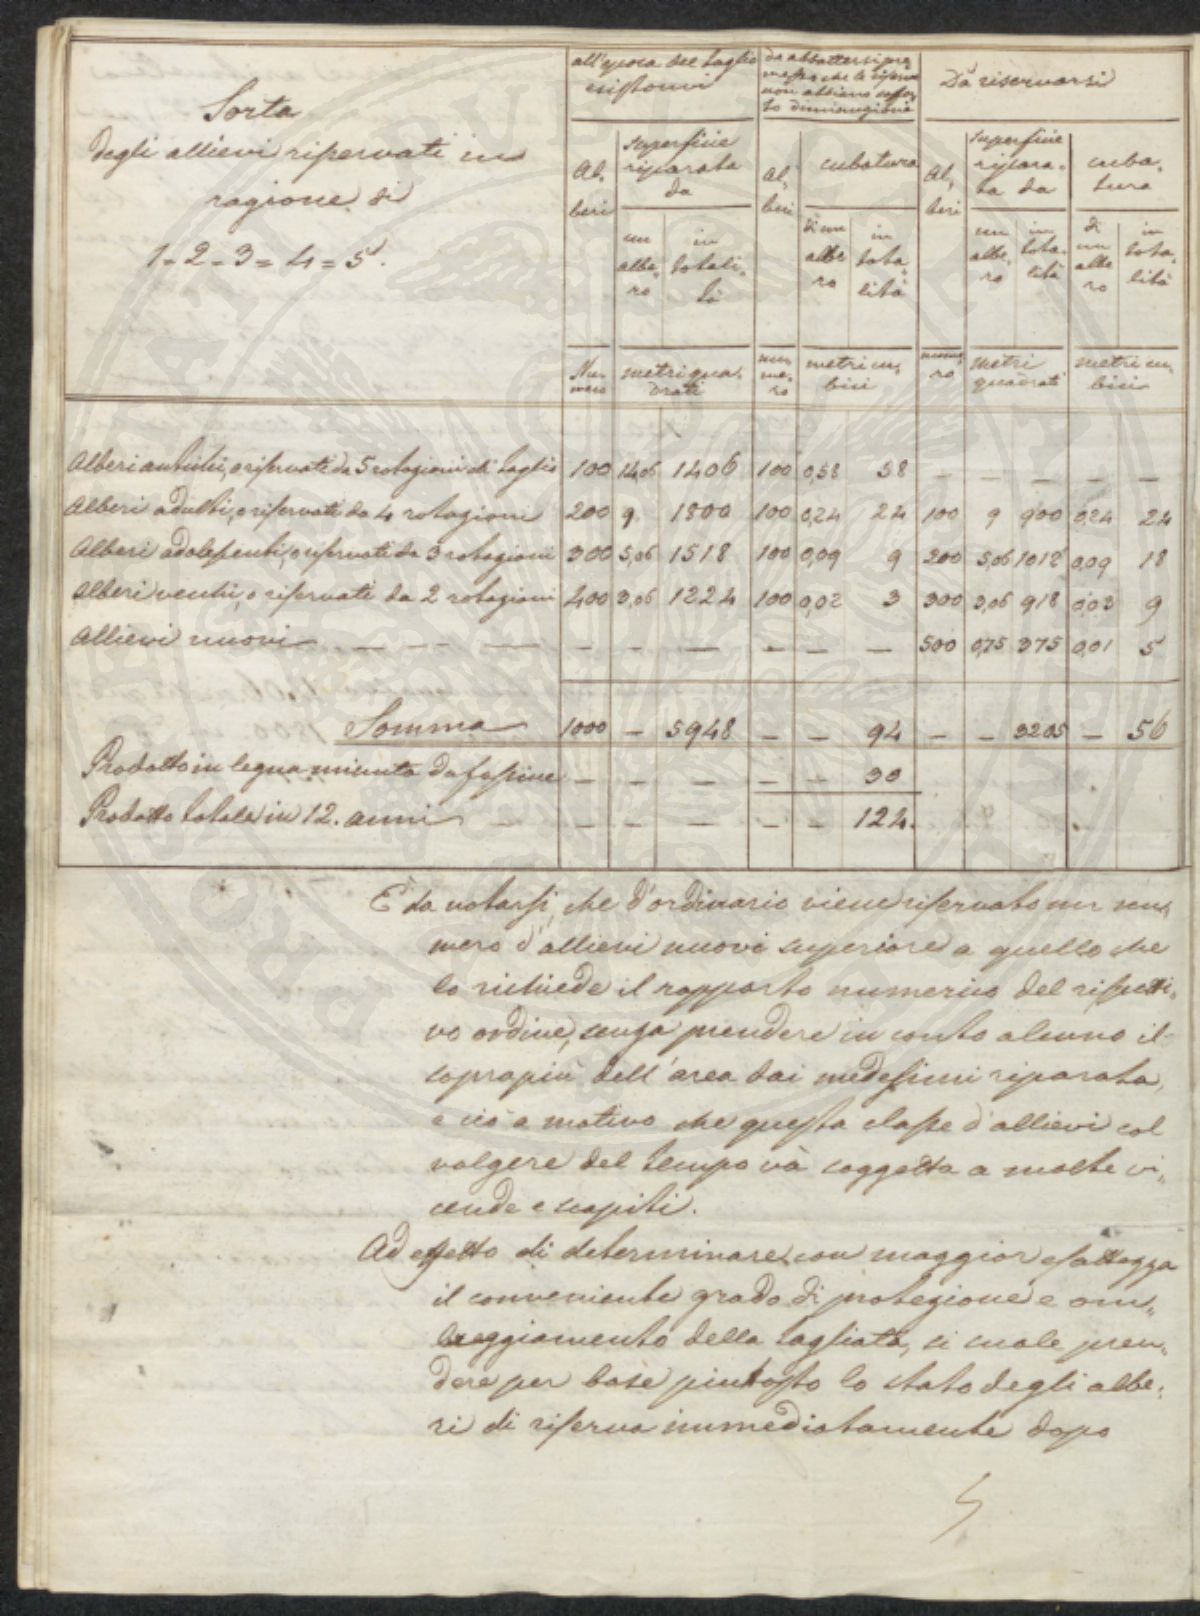 Sorta
degli allievi riservati in
ragione di
1=2=3=4=5.
all'epoca del taglio
esistonvi
da abbattersi pre,
messo che le riserve
non abbiano soffer,
to diminuzione
Da riservarsi
Al,
beri
superficie
riparata
da
al,
beri
cubatura
al,
beri
superficie
ripara,
ta da
cuba,
tura
un
albe,
ro
in
totali,
tà
di un
albe
ro
in
tota,
lità
un
albe,
ro
in
tota,
lità
di
un
albe
ro
in
tota,
lità
Nu,
mero
metri qua,
drati
num
me,
ro
metri cu,
bici
nume,
ro
metri
quadrati
metri cu,
bici
Alberi antichi, o riservati da 5 rotazioni di taglio 100 14,06 1406 100 0,58 58 — — — — —
Alberi adulti, o riservati da 4 rotazioni 200 9. 1800 100 0,24 24 100 9 900 0,24 24
Alberi adolescenti, o riservati da 3 rotazioni 300 5,06 1518 100 0,09 9 200 5,06 1012 0,09 18
Alberi vecchi, o riservati da 2 rotazioni 400 3,06 1224 100 0,02 3 300 3,06 918 0,03 9
Allievi nuovi — — — — — — — — — — 500 0,75 375 0,01 5
Somma 1000 — 5948 — — 94 — — 3205 — 56
Prodotto in legna minuta da fascine — — — — — 30
Prodotto totale in 12. anni — — — — — — 124.
È da notarsi, che d'ordinario viene riservato un nu,
mero d'allievi nuovi superiore a quello che
lo richiede il rapporto numerico del rispetti,
vo ordine, senza prendere in conto alcuno il
soprapiù dell'area dai medesimi riparata,
e ciò a motivo che questa classe d'allievi col
volgere del tempo và soggetta a molte vi,
cende e scapiti.
Ad effetto di determinare con maggior esattezza
il conveniente grado di protezione e om,
breggiamento della tagliata, si suole pren,
dere per base piuttosto lo stato degli albe,
ri di riserva immediatamente dopo